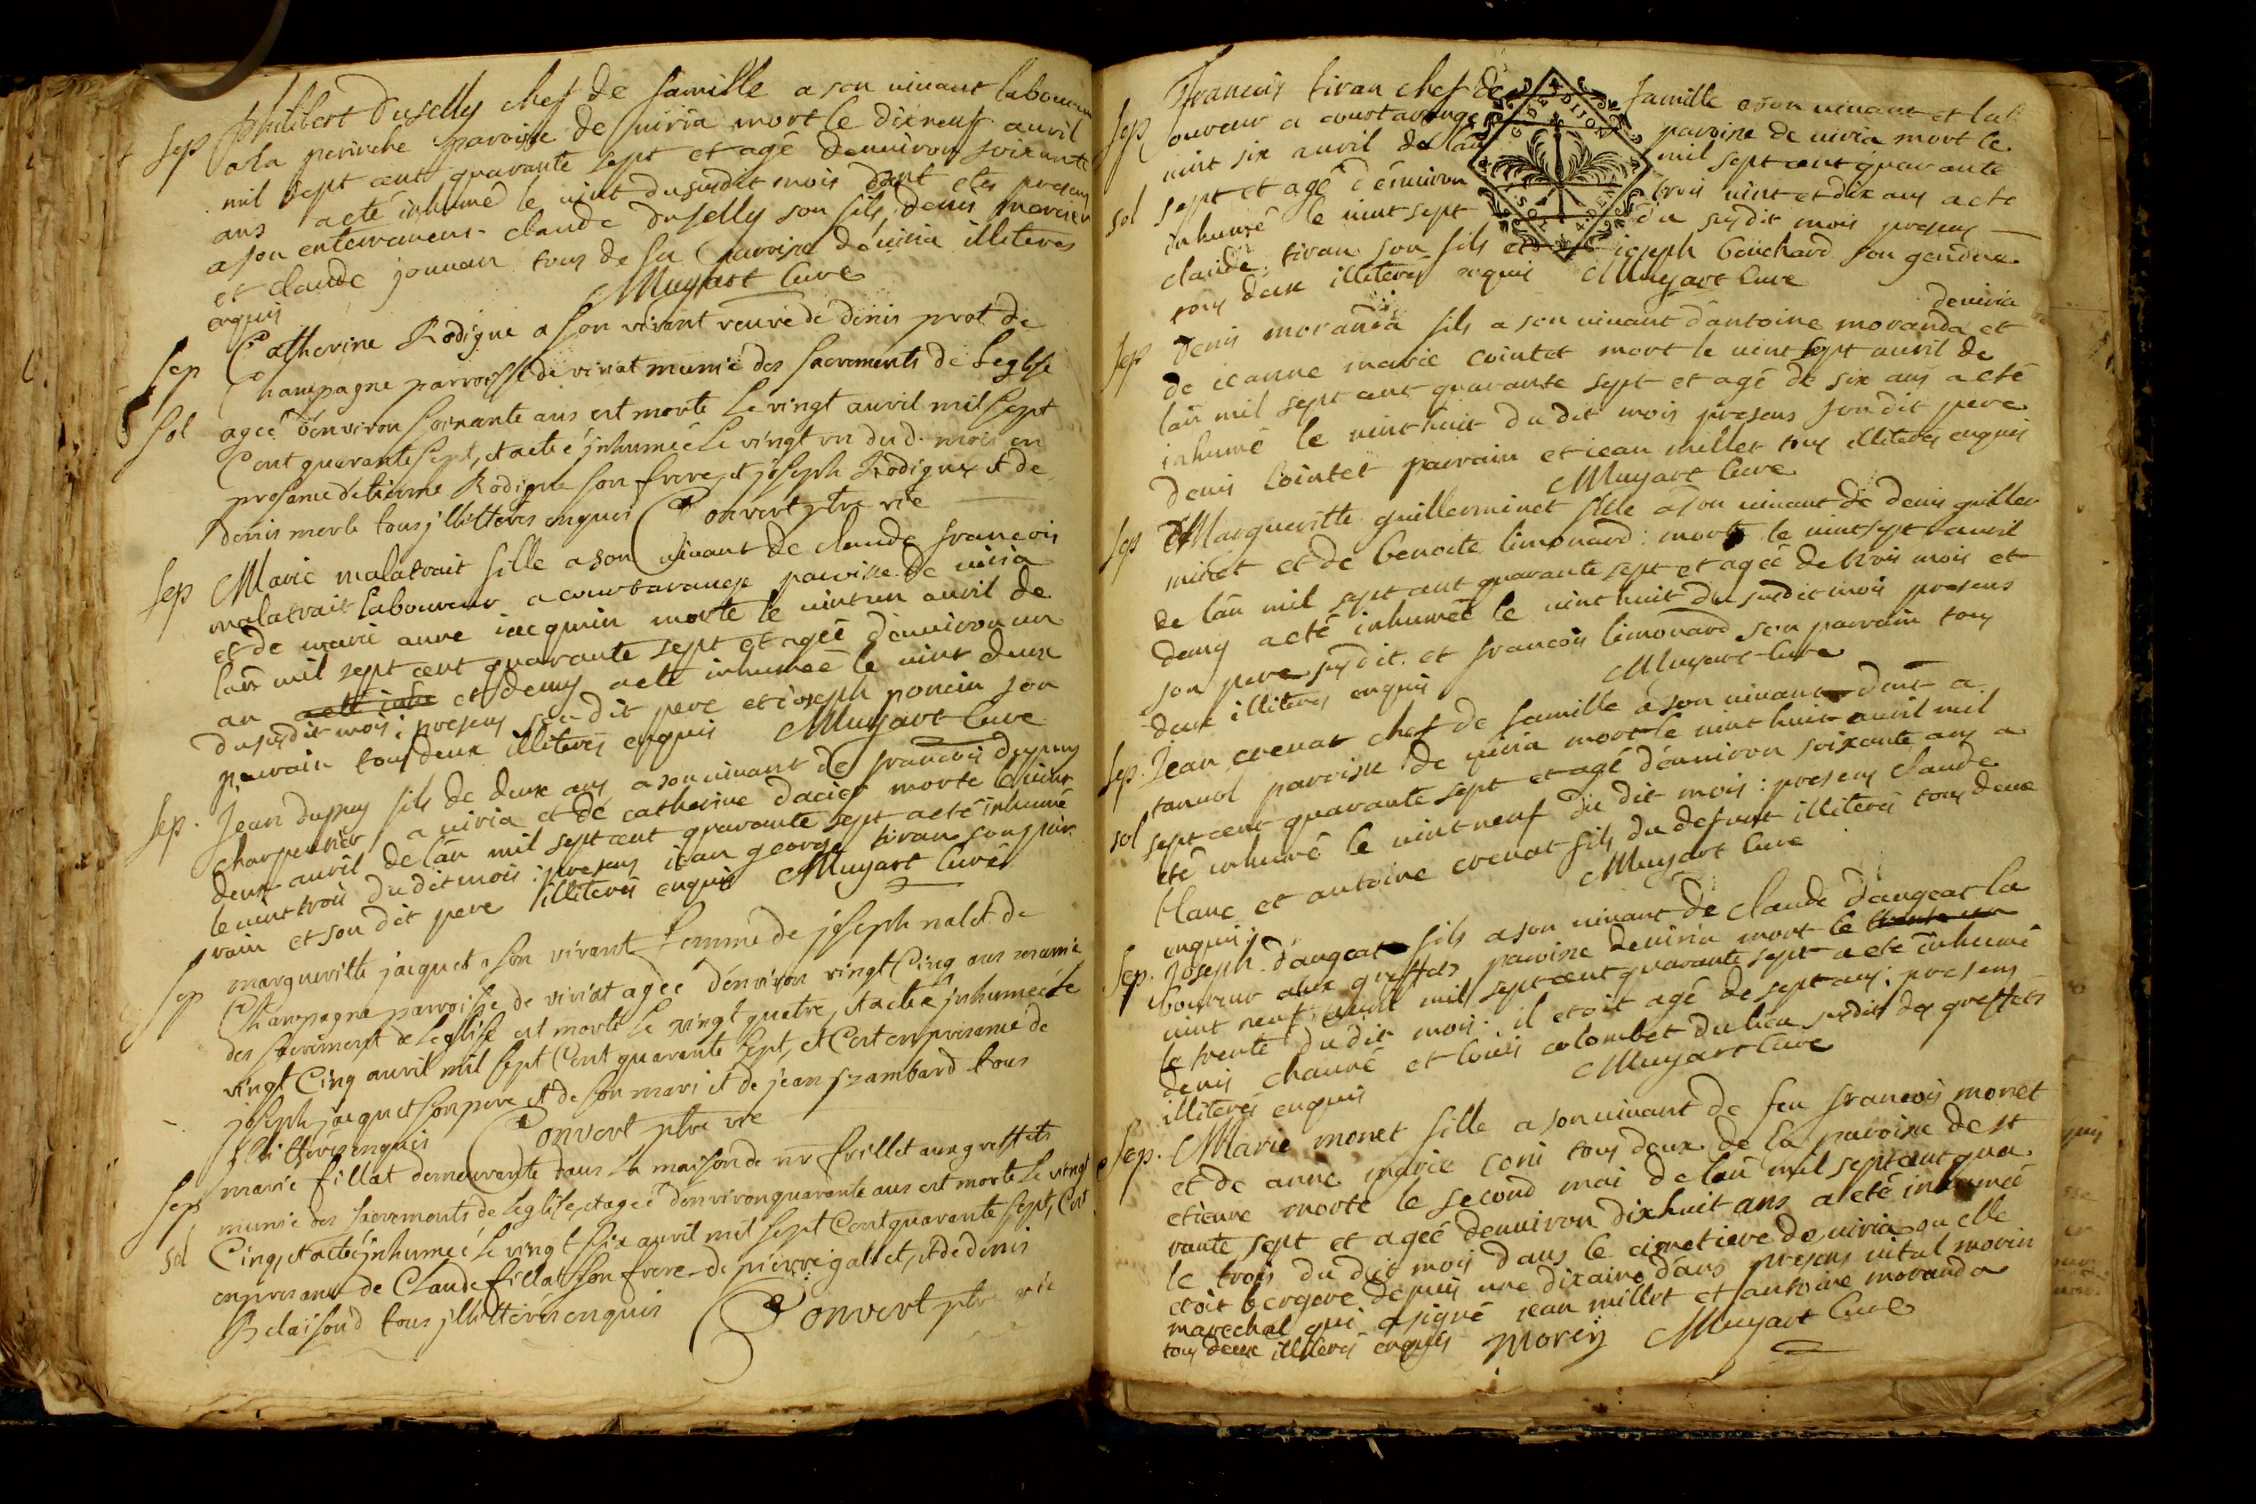 Sep Philibert Duselly chef de famille a son vivant laboureur
a la perinche paroisse de viria mort le dixneuf auvril
mil sept cent quarante sept et agé denviron soixante
ans acté inhumé le vint du susdit mois dont etés presens
a son enterremens claude duselly son fils denis mercier
et claude jouvan tous de la paroisse de viria illiteres
enquis Muyart Cure
Sep Catherine Rodigue a son vivant veuve de denis prot de
Champagne parroisse de viriat munie des sacrements de Leglise
Sol agée denviron soixante ans est morte le vingt auvril mil sept
Cent quarante sept, et acté jnhumée le vingt un du d. mois en
presence detienne Rodigue son frere, et joseph Rodigue et de
denis merle tous jllitteres enquis Convert ptre vic
Sep Marie malatrait fille a son vivant de claude francois
malatrait laboureur a courtavange paroisse de viria
et de marie anne jacquin morte le vintun auvril de
lan mil sept cent quarante sept et agée denviron un
an acté inhu et demy acté inhumée le vint deux
du susdit mois; presens son dit pere et joseph poncin son
parain tous deux illiteres enquis Muyart Cure
Sep. Jean dupuy fils de deux ans a son vivant de francois dupuy
charpentier a viria et de catherine dacier morte le vint
deux auvril de lan mil sept cent quarante sept acté inhumé
le vint trois du dit mois: presens jean george tiran son par
rain et son dit pere illiteres enquis Muyart Curé
Sep marguerithe jacquet a son vivant femme de joseph nalet de
Champagne parroisse de viriat agée denviron vingt Cinq ans munie
des sacrements de Leglise est morte le vingt quatre, et acté jnhumée le
vingt Cinq auvril mil sept Cent quarante sept, et C'est en presence de
joseph jacquet son pere et de son mari et de jean jambard tous
jllitterés enquis Convert ptre vic
Sep marie fillat demeurante dans la maison de mr frillet aux greffets
munie des sacrements de Leglise, et agée denviron quarante ans est morte le vingt
Sol Cinq, et acté jnhumée le vingt six auvril mil sept Cent quarante sept, C'est
en presance de Claude fillat son frere de pierre galet, et de denis
Belaisoud tous jllitterés enquis Convert ptre vic
Sep Francois tiran chef de famille a son vivant et lab
oureur a courtavange paroisse de viria mort le
vint six auvril de lan mil sept cent quarante
Sol sept et agé denviron trois vint et dix ans acté
inhumé le vint sept du susdit mois presens
claude tiran son fils et joseph bouchard son gendre
tous deux illiteres enquis Muyart Cure
G DE DIJON
1 SOL 4 DEN
deviria
Sep Denis moranda fils a son vivant dantoine moranda et
de jeanne marie cointet mort le vint sept auvril de
lan mil sept cent quarante sept et agé de six ans acté
inhumé le vint huit du dit mois presens son dit pere
denis Cointet parrain et jean millet tous illiteres enquis
Muyart Cure
Sep Margueritte guillerminet fille a son vivant de denis guiller
minet et de benoite limonard: morte le vintsept auvril
de lan mil sept cent quarante sept et agée de trois mois et
demy acté inhumée le vint huit du susdit mois presens
son pere susdit et francois limonard son parrain tous
deux illiteres enquis Muyart Cure
Sep. Jean crenat chef de famille a son vivant dent a
tanuol paroisse de viria mort le vint huit auvril mil
Sol sept cent quarante sept et agé denviron soixante ans a
eté inhumé le vint neuf du dit mois: presens claude
blanc et antoine crenat fils du defunt illiteres tous deux
enquis; Muyart Cure
Sep. Joseph dangeat fils a son vivant de claude dangeat la
boureur aux greffets paroisse deviria mort le trente un
vint neuf auvril mil sept cent quarante sept acté inhumé
le trente du dit mois: il etoit agé de sept ans: presens
denis chauné et louis colombet du lieu susdit des greffets
illiteres enquis Muyart Cure
Sep. Marie monet fille a son vivant de feu francois monet
et de anne marie coni tous deux de la paroisse de st
etienne morte le second mai de lan mil sept cent qua
rante sept et agée denviron dixhuit ans acté inhumée
le trois du dit mois dans le cimetiere de viria ou elle
etoit bergere depuis une dixaine dans presens vital morin
marechal qui a signé jean millet et antoine moranda
tous deux illiteres enquis Morin Muyart Cure